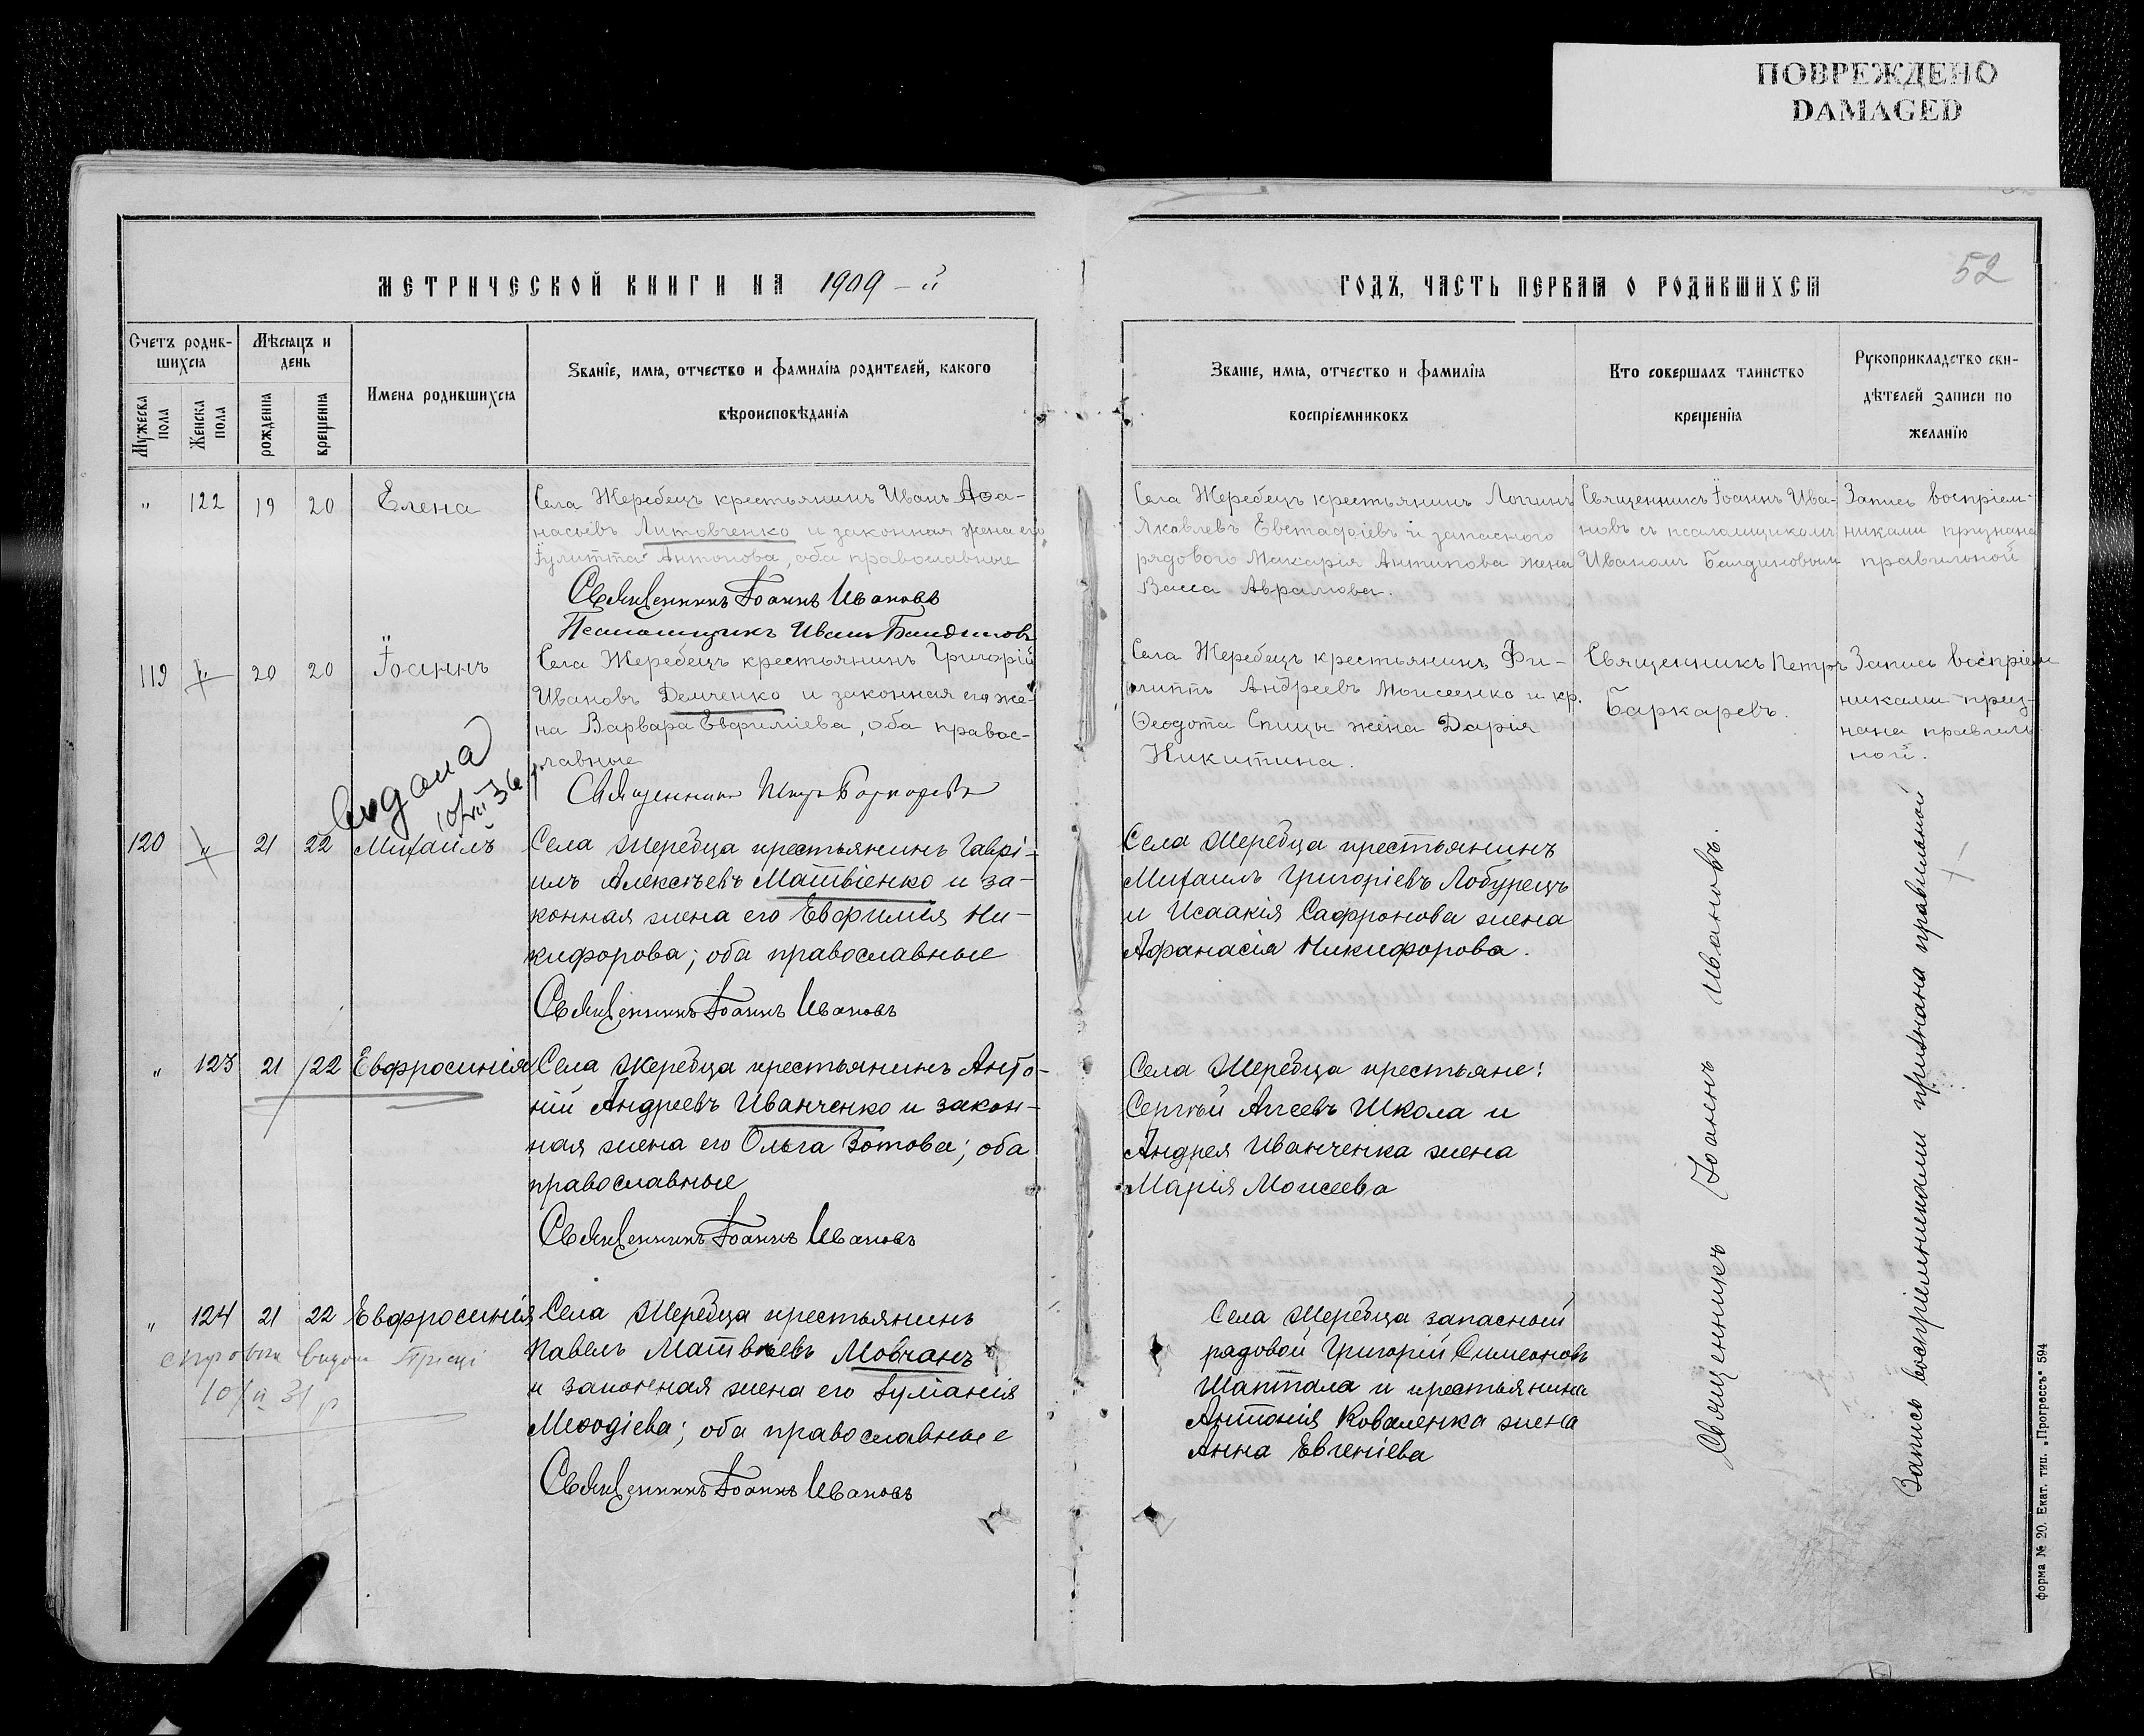 ПОВРЕЖДЕНО
DAMAGED
МЕТРИЧЕСКОЙ КНИГИ НА 1909-й
Счетъ родив-
шихся
Мѣсяцъ и
день
Имена родившихся
Званіе, имя, отчество и фамилія родителей, какого
вѣроисповѣданія
Мужеска
пола
Женска
пола
рожденія
крещенія
" 122 19 20 Елена
Села Жеребецъ крестьянинъ Иванъ Аѳа-
насьевъ Литовченко и законная жена его
Іулитта Антонова, оба православные
Священникъ Іоаннъ Ивановъ
Псаломщикъ Иванъ Балдиновъ
119 " 20 20 Іоаннъ
Села Жеребецъ крестьянинъ Григорій
Ивановъ Демченко и законная его же-
на Варвара Евфиміева, оба правос-
лавные
Священникъ Петръ Баркаревъ
120 " 21 22 Михаилъ
Села Жеребца крестьянинъ Гаврі-
илъ Алексѣевъ Матвіенко и за-
конная жена его Евфимія Ни-
кифорова; оба православные
Священникъ Іоаннъ Ивановъ
" 123 21 22 Евфросинія
Села Жеребца крестьянинъ Анто-
ній Андреевъ Иванченко и закон-
ная жена его Ольга Зотова; оба
православные
Священникъ Іоаннъ Ивановъ
" 124 21 22 Евфросинія
Села Жеребца крестьянинъ
Павелъ Матвѣевъ Мовчанъ
и законная жена его Іуліанія
Меѳодіева; оба православные
Священникъ Іоаннъ Ивановъ
52
ГОДЪ, ЧАСТЬ ПЕРВАЯ О РОДИВШИХСЯ
Званіе, имя, отчество и фамилія
воспріемниковъ
Кто совершалъ таинство
крещенія
Рукоприкладство сви-
дѣтелей записи по
желанію
Села Жеребецъ крестьянинъ Логинъ
Яковлевъ Евстафіевъ и запасного
рядового Макарія Антипова жена
Васса Аврамова.
Священникъ Іоаннъ Ива-
новъ съ псаломщикомъ
Иваномъ Балдиновымъ
Запись воспріем-
никами признана
правильной
Села Жеребецъ крестьянинъ Фи-
липпъ Андреевъ Моисеенко и кр.
Ѳеодота Спицы жена Дарія
Никитина.
Священникъ Петръ
Баркаревъ.
Запись воспріем
никами приз-
нана правиль
ной.
Села Жеребца крестьянинъ
Михаилъ Григоріевъ Лобунецъ
и Исаакія Сафронова жена
Афанасія Никифорова.
Села Жеребца крестьяне:
Сергѣй Агеевъ Школа и
Андрея Иванченка жена
Марія Моисеева
Села Жеребца запасный
рядовой Григорій Симеоновъ
Шаптала и крестьянина
Антонія Коваленка жена
Анна Евгеніева
Священникъ Іоаннъ Ивановъ.
Запись воспріемниками признана правильной
форма № 20. Екат. тип. „Прогрессъ" 594